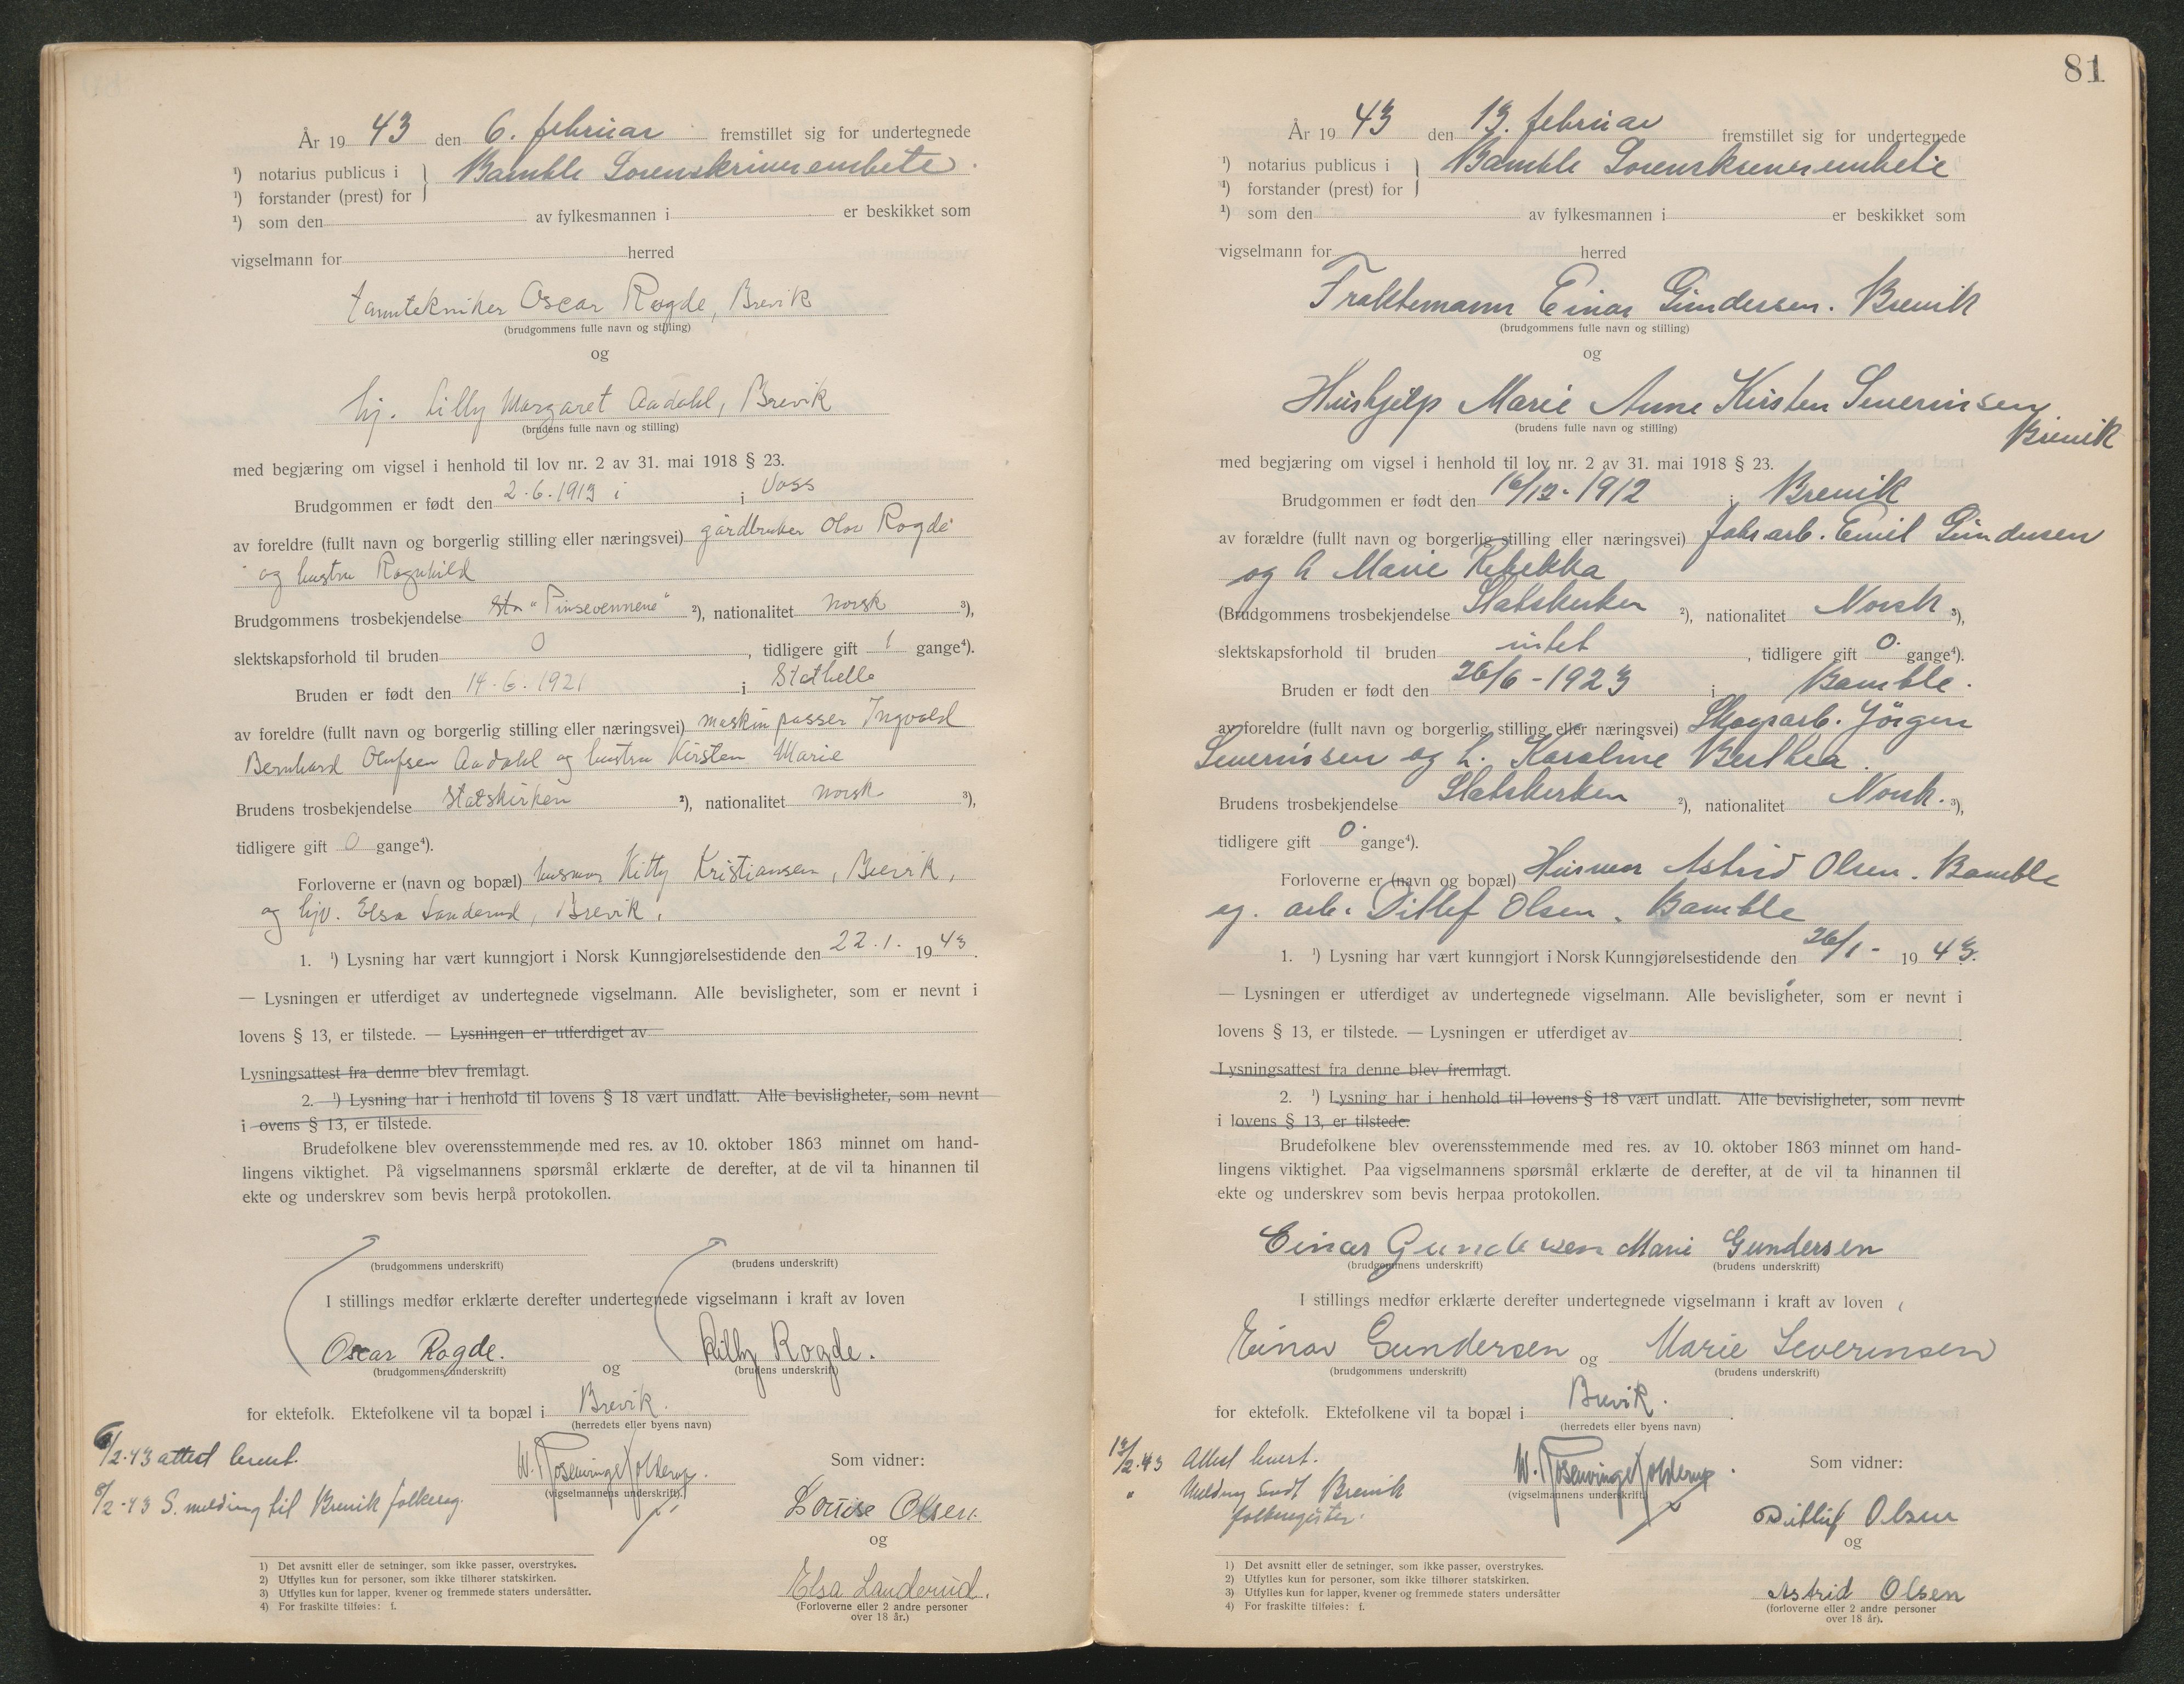 År 19 43 den 6. februar fremstillet sig for undertegnede
¹) notarius publicus i
Bamble Sorenskriverembete.
¹) forstander (prest) for
¹) som den av fylkesmannen i er beskikket som
vigselmann for herred
tanntekniker Oscar Rogde, Brevik
(brudgommens fulle navn og stilling)
og
hj. Lilly Margaret Aadahl, Brevik
(brudens fulle navn og stilling)
med begjæring om vigsel i henhold til lov nr. 2 av 31. mai 1918 § 23.
Brudgommen er født den 2.6.1913 i i Voss
av foreldre (fullt navn og borgerlig stilling eller næringsvei) gårdbruker Olav Rogde
og hustru Ragnhild
Brudgommens trosbekjendelse "Pinsevennene" ²), nationalitet norsk ³),
slektskapsforhold til bruden 0, tidligere gift 1 gange⁴).
Bruden er født den 14.6.1921 i Stathelle
av foreldre (fullt navn og borgerlig stilling eller næringsvei) maskinpasser Ingvald
Bernhard Olufsen Aadahl og hustru Kirsten Marie
Brudens trosbekjendelse Statskirken ²), nationalitet norsk ³),
tidligere gift 0 gange⁴).
Forloverne er (navn og bopæl) husmor Kitty Kristiansen, Brevik,
og hjv. Elsa Landerud, Brevik.
1. ¹) Lysning har vært kunngjort i Norsk Kunngjørelsestidende den 22.1. 19 43.
— Lysningen er utferdiget av undertegnede vigselmann. Alle bevisligheter, som er nevnt i
lovens § 13, er tilstede. — Lysningen er utferdiget av
Lysningsattest fra denne blev fremlagt.
2. ¹) Lysning har i henhold til lovens § 18 vært undlatt. Alle bevisligheter, som nevnt
i ovens § 13, er tilstede.
Brudefolkene blev overensstemmende med res. av 10. oktober 1863 minnet om hand-
lingens viktighet. På vigselmannens spørsmål erklærte de derefter, at de vil ta hinannen til
ekte og underskrev som bevis herpå protokollen.
(brudgommens underskrift) (brudens underskrift)
I stillings medfør erklærte derefter undertegnede vigselmann i kraft av loven
Oscar Rogde. og Lilly Rogde.
(brudgommens underskrift) (brudens underskrift)
for ektefolk. Ektefolkene vil ta bopæl i Brevik.
(herredets eller byens navn)
6/2-43 attest levert.
8/2-43 S. melding til Brevik folkereg.
W. Rosenvinge Kolderup.
(vigselmannens underskrift)
Som vidner:
Louise Olsen.
og
Elsa Landerud.
(Forloverne eller 2 andre personer
over 18 år.)
1) Det avsnitt eller de setninger, som ikke passer, overstrykes.
2) Utfylles kun for personer, som ikke tilhører statskirken.
3) Utfylles kun for lapper, kvener og fremmede staters undersåtter.
4) For fraskilte tilføies: f.
81
År 19 43 den 13. februar fremstillet sig for undertegnede
¹) notarius publicus i
Bamble Sorenskriverembete
¹) forstander (prest) for
¹) som den av fylkesmannen i er beskikket som
vigselmann for herred
Fraktemann Einar Gundersen. Brevik
(brudgommens fulle navn og stilling)
og
Hushjelp Marie Anne Kirsten Severinsen.
Brevik
(brudens fulle navn og stilling)
med begjæring om vigsel i henhold til lov nr. 2 av 31. mai 1918 § 23.
Brudgommen er født den 16/12-1912 i Brevik
av forældre (fullt navn og borgerlig stilling eller næringsvei) fabr.arb. Emil Gundersen
og h Marie Rebekka
(Brudgommens trosbekjendelse Statskirken ²), nationalitet Norsk ³),
slektskapsforhold til bruden intet, tidligere gift 0 gange⁴).
Bruden er født den 26/6-1923 i Bamble.
av foreldre (fullt navn og borgerlig stilling eller næringsvei) Skogsarb. Jörgen
Severinsen og h. Karoline Berthea.
Brudens trosbekjendelse Statskirken ²), nationalitet Norsk. ³),
tidligere gift 0 gange⁴).
Forloverne er (navn og bopæl) Husmor Astrid Olsen. Bamble
og. arb. Ditlef Olsen. Bamble
1. ¹) Lysning har vært kunngjort i Norsk Kunngjørelsestidende den 26/1- 19 43.
— Lysningen er utferdiget av undertegnede vigselmann. Alle bevisligheter, som er nevnt i
lovens § 13, er tilstede. — Lysningen er utferdiget av
Lysningsattest fra denne blev fremlagt.
2. ¹) Lysning har i henhold til lovens § 18 vært undlatt. Alle bevisligheter, som nevnt
i lovens § 13, er tilstede.
Brudefolkene blev overensstemmende med res. av 10. oktober 1863 minnet om hand-
lingens viktighet. Paa vigselmannens spørsmål erklærte de derefter, at de vil ta hinannen til
ekte og underskrev som bevis herpaa protokollen.
Einar Gundersen Marie Gundersen
(brudgommens underskrift) (brudens underskrift)
I stillings medfør erklærte derefter undertegnede vigselmann i kraft av loven
Einar Gundersen og Marie Severinsen
(brudgommens underskrift) (brudens underskrift)
for ektefolk. Ektefolkene vil ta bopæl i Brevik.
(herredets eller byens navn)
13/2-43 Attest levert.
" Melding sendt Brevik
folkeregister.
W. Rosenvinge Kolderup.
(vigselmannens underskrift)
Som vidner:
Ditlef Olsen
og
Astrid Olsen
(forloverne eller 2 andre personer
over 18 år).
1) Det avsnitt eller de setninger, som ikke passer, overstrykes.
2) Utfylles kun for personer, som ikke tilhører statskirken.
3) Utfylles kun for lapper, kvener og fremmede staters undersåtter
4) For fraskilte tilføies: f.